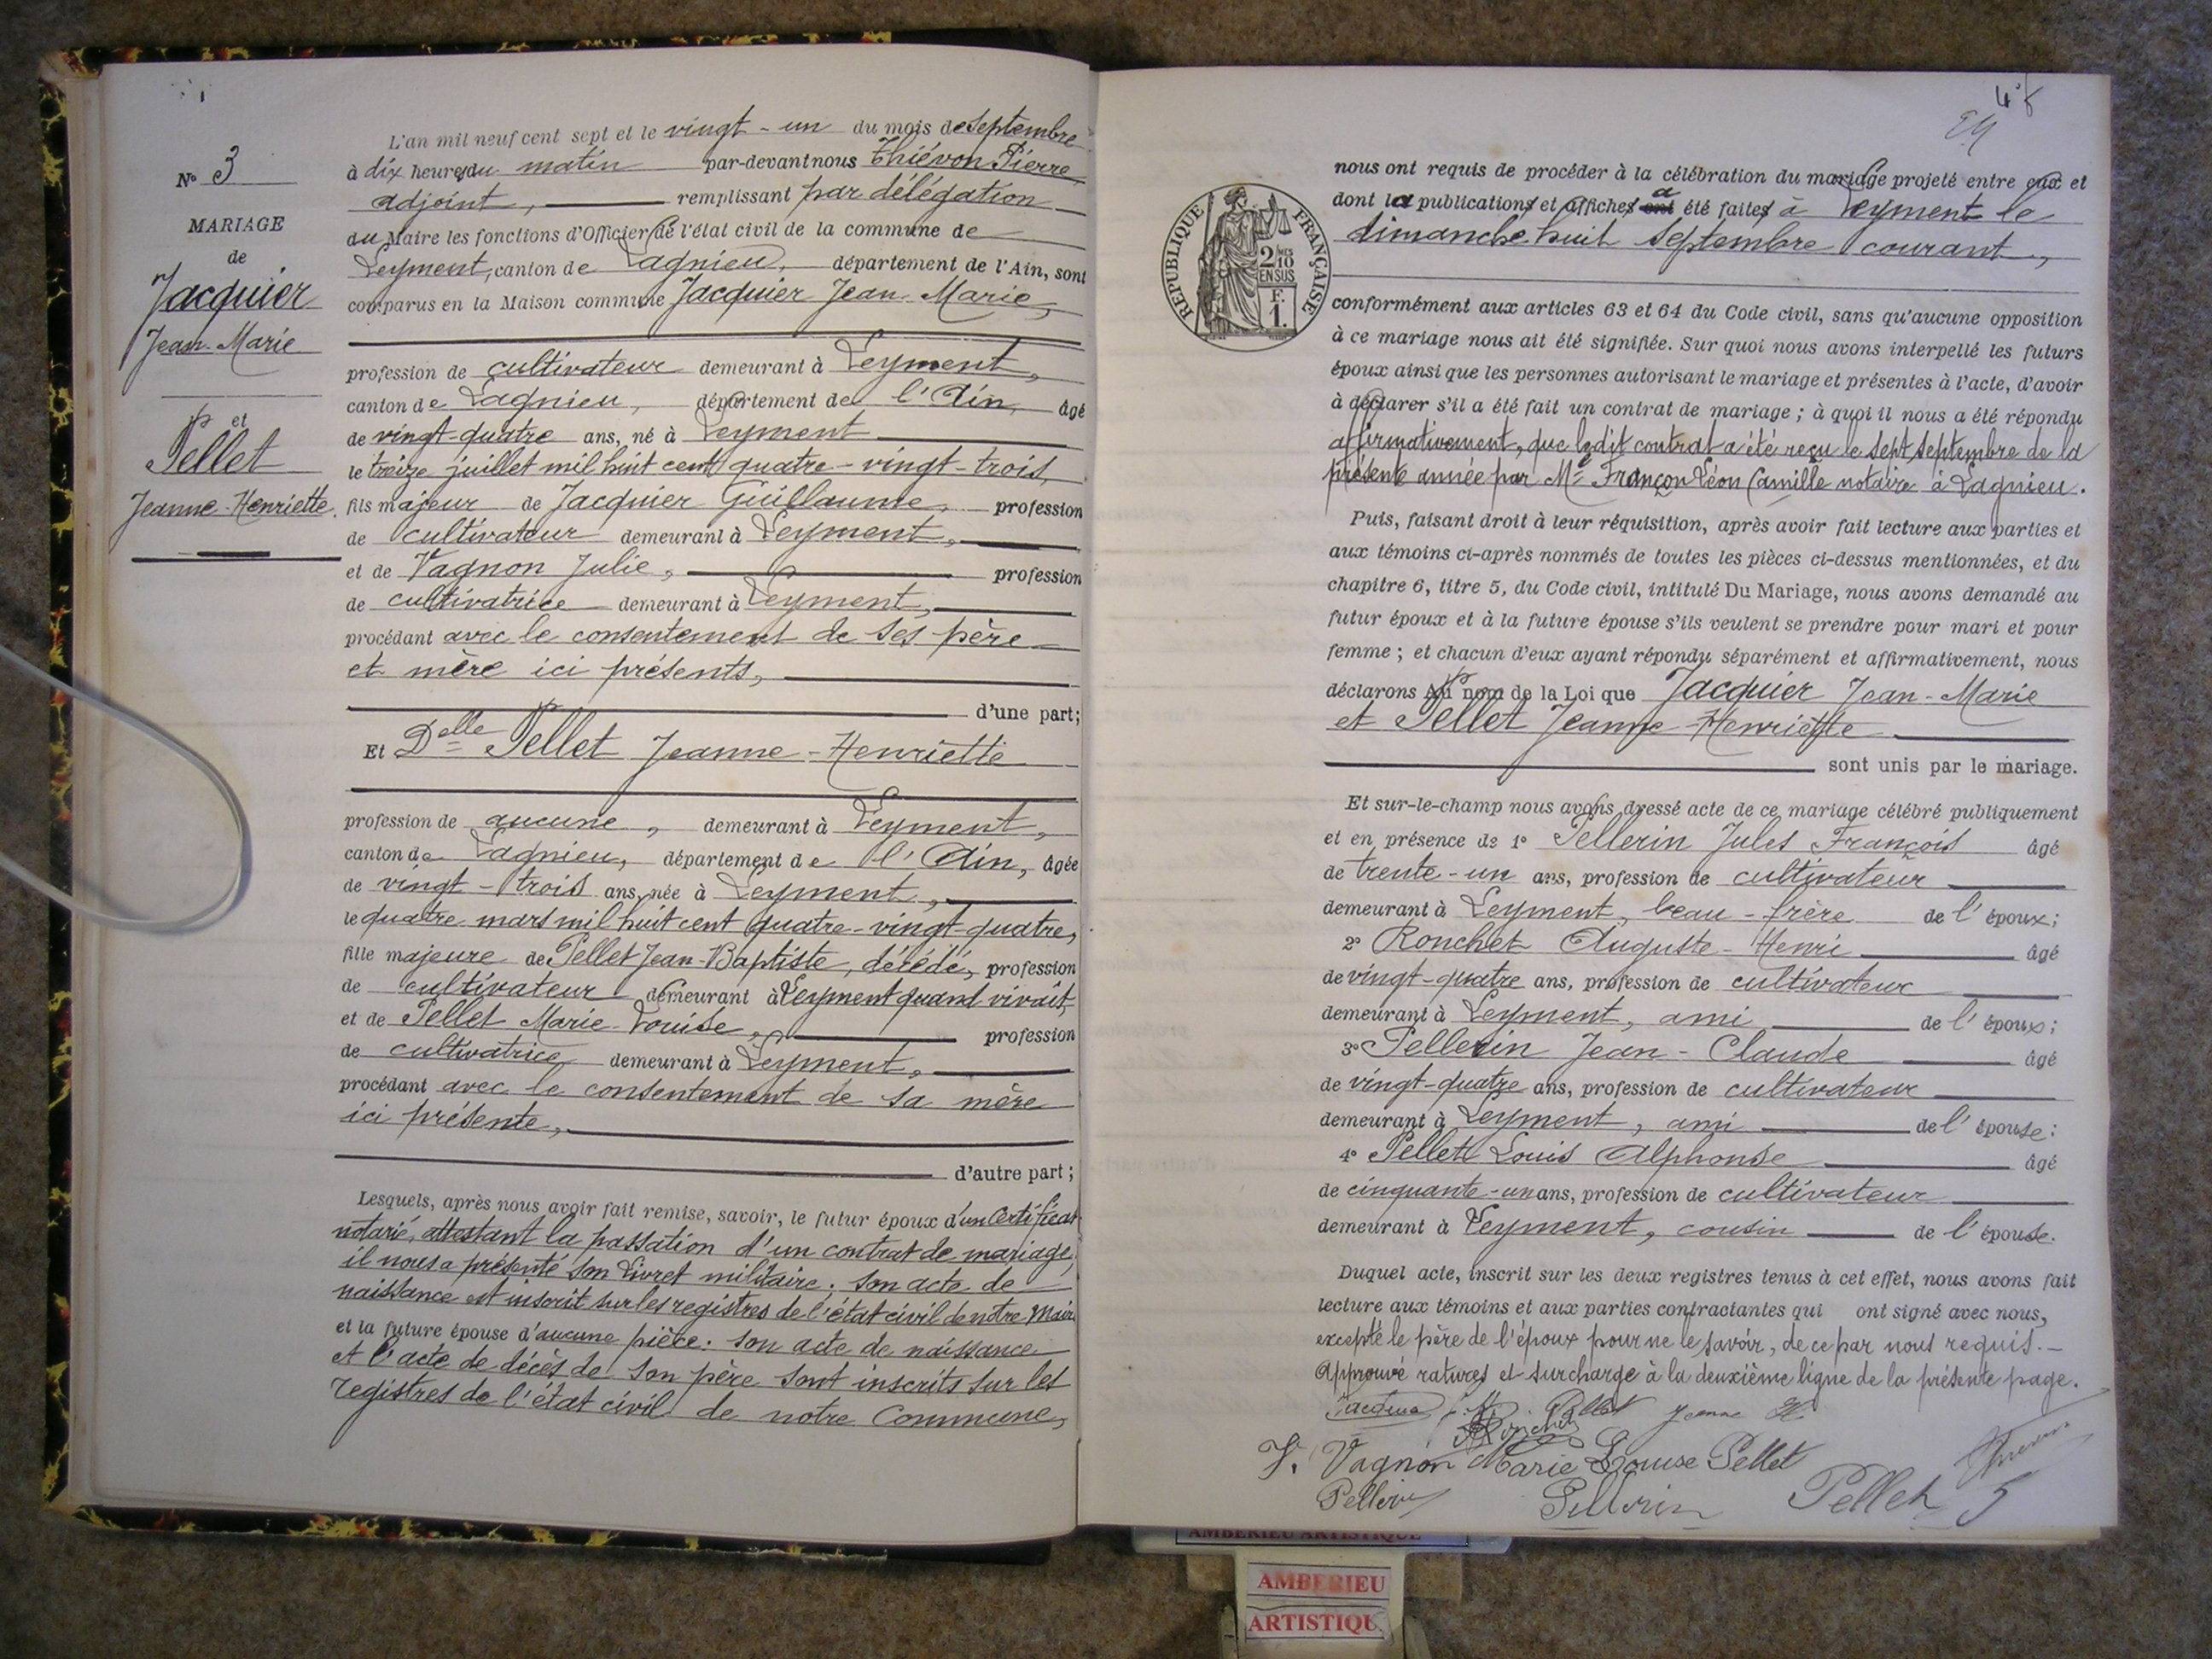 N° 3
MARIAGE
de
Jacquier
Jean-Marie
et
Pellet
Jeanne-Henriette.
L'an mil neuf cent sept et le vingt-un du mois de septembre
à dix heures du matin par-devant nous Thiévon Pierre
adjoint, remplissant par délégation
du Maire les fonctions d'Officier de l'état civil de la commune de
Leyment, canton de Lagnieu, département de l'Ain, sont
comparus en la Maison commune Jacquier Jean-Marie,
profession de cultivateur demeurant à Leyment,
canton de Lagnieu, département de l'Ain, âgé
de vingt-quatre ans, né à Leyment
le treize juillet mil huit cent quatre-vingt-trois,
fils majeur de Jacquier Guillaume, profession
de cultivateur demeurant à Leyment,
et de Vagnon Julie, profession
de cultivatrice demeurant à Leyment,
procédant avec le consentement de ses père
et mère ici présents,
d'une part;
Et Delle Pellet Jeanne-Henriette
profession de aucune, demeurant à Leyment,
canton de Lagnieu, département de l'Ain, âgée
de vingt-trois ans, née à Leyment,
le quatre mars mil huit cent quatre-vingt-quatre,
fille majeure de Pellet Jean-Baptiste, décédé, profession
de cultivateur demeurant à Leyment quand vivait,
et de Pellet Marie-Louise, profession
de cultivatrice demeurant à Leyment,
procédant avec le consentement de sa mère
ici présente,
d'autre part;
Lesquels, après nous avoir fait remise, savoir, le futur époux d'un Certificat
notarié, attestant la passation d'un contrat de mariage,
il nous a présenté son Livret militaire; son acte de
naissance est inscrit sur les registres de l'état civil de notre Mairie
et la future épouse d'aucune pièce: son acte de naissance
et l'acte de décès de son père sont inscrits sur les
registres de l'état civil de notre Commune,
24
RÉPUBLIQUE FRANÇAISE
2/10 MES
EN SUS
F.
1.
nous ont requis de procéder à la célébration du mariage projeté entre eux et
dont la publications et affiches ont a été faites à Leyment le
dimanche huit septembre courant,
conformément aux articles 63 et 64 du Code civil, sans qu'aucune opposition
à ce mariage nous ait été signifiée. Sur quoi nous avons interpellé les futurs
époux ainsi que les personnes autorisant le mariage et présentes à l'acte, d'avoir
à déclarer s'il a été fait un contrat de mariage; à quoi il nous a été répondu
affirmativement, que ledit contrat a été reçu le sept septembre de la
présente année par Me Françon Léon Camille notaire à Lagnieu.
Puis, faisant droit à leur réquisition, après avoir fait lecture aux parties et
aux témoins ci-après nommés de toutes les pièces ci-dessus mentionnées, et du
chapitre 6, titre 5, du Code civil, intitulé Du Mariage, nous avons demandé au
futur époux et à la future épouse s'ils veulent se prendre pour mari et pour
femme; et chacun d'eux ayant répondu séparément et affirmativement, nous
déclarons Au nom de la Loi que Jacquier Jean-Marie
et Pellet Jeanne-Henriette
sont unis par le mariage.
Et sur-le-champ nous avons dressé acte de ce mariage célébré publiquement
et en présence de 1° Pellerin Jules François âgé
de trente-un ans, profession de cultivateur
demeurant à Leyment, beau-frère de l'époux;
2° Ronchet Auguste-Henri âgé
de vingt-quatre ans, profession de cultivateur
demeurant à Leyment, ami de l'époux;
3° Pellerin Jean-Claude âgé
de vingt-quatre ans, profession de cultivateur
demeurant à Leyment, ami de l'épouse;
4° Pellet Louis Alphonse âgé
de cinquante-un ans, profession de cultivateur
demeurant à Leyment, cousin de l'épouse.
Duquel acte, inscrit sur les deux registres tenus à cet effet, nous avons fait
lecture aux témoins et aux parties contractantes qui ont signé avec nous,
excepté le père de l'époux pour ne le savoir, de ce par nous requis.
Approuvé ratures et surcharge à la deuxième ligne de la présente page.
Pellet Jeanne H
J. Vagnon Marie Louise Pellet
Pellerin Pellerin Pellet
AMBERIEU ARTISTIQUE
AMBERIEU
ARTISTIQU